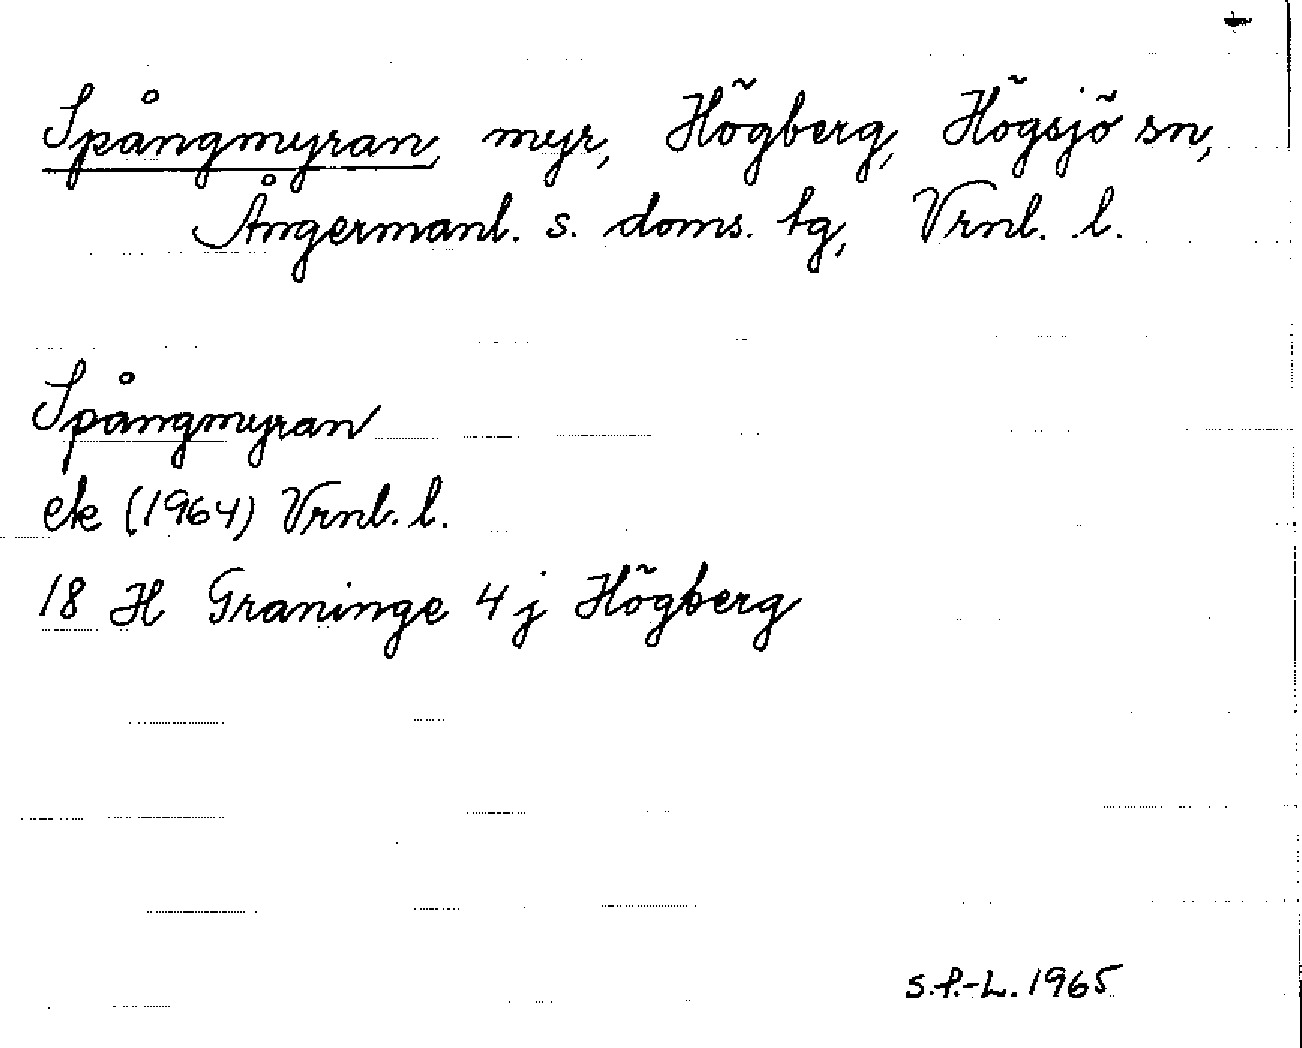 Spångmyran, myr, Högberg, Högsjö sn,
Ångermanl. s. doms. tg, Vrnl. l.
Spångmyran
ek (1964) Vrnl. l.
18 H Graninge 4 j Högberg
S.f.-L. 1965